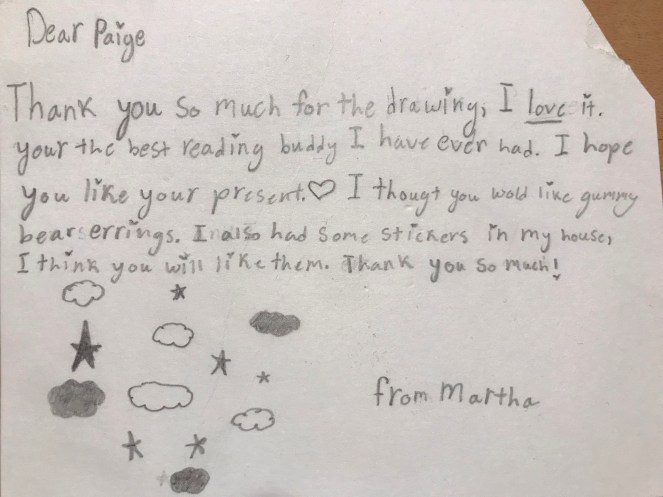 Dear Paige
Thank you so much for the drawing, I love it.
your the best reading buddy I have ever had. I hope
you like your present.♡ I thougt you wold like gummy
bear errings. I also had some stickers in my house,
I think you will like them. Thank you so much!
from Martha